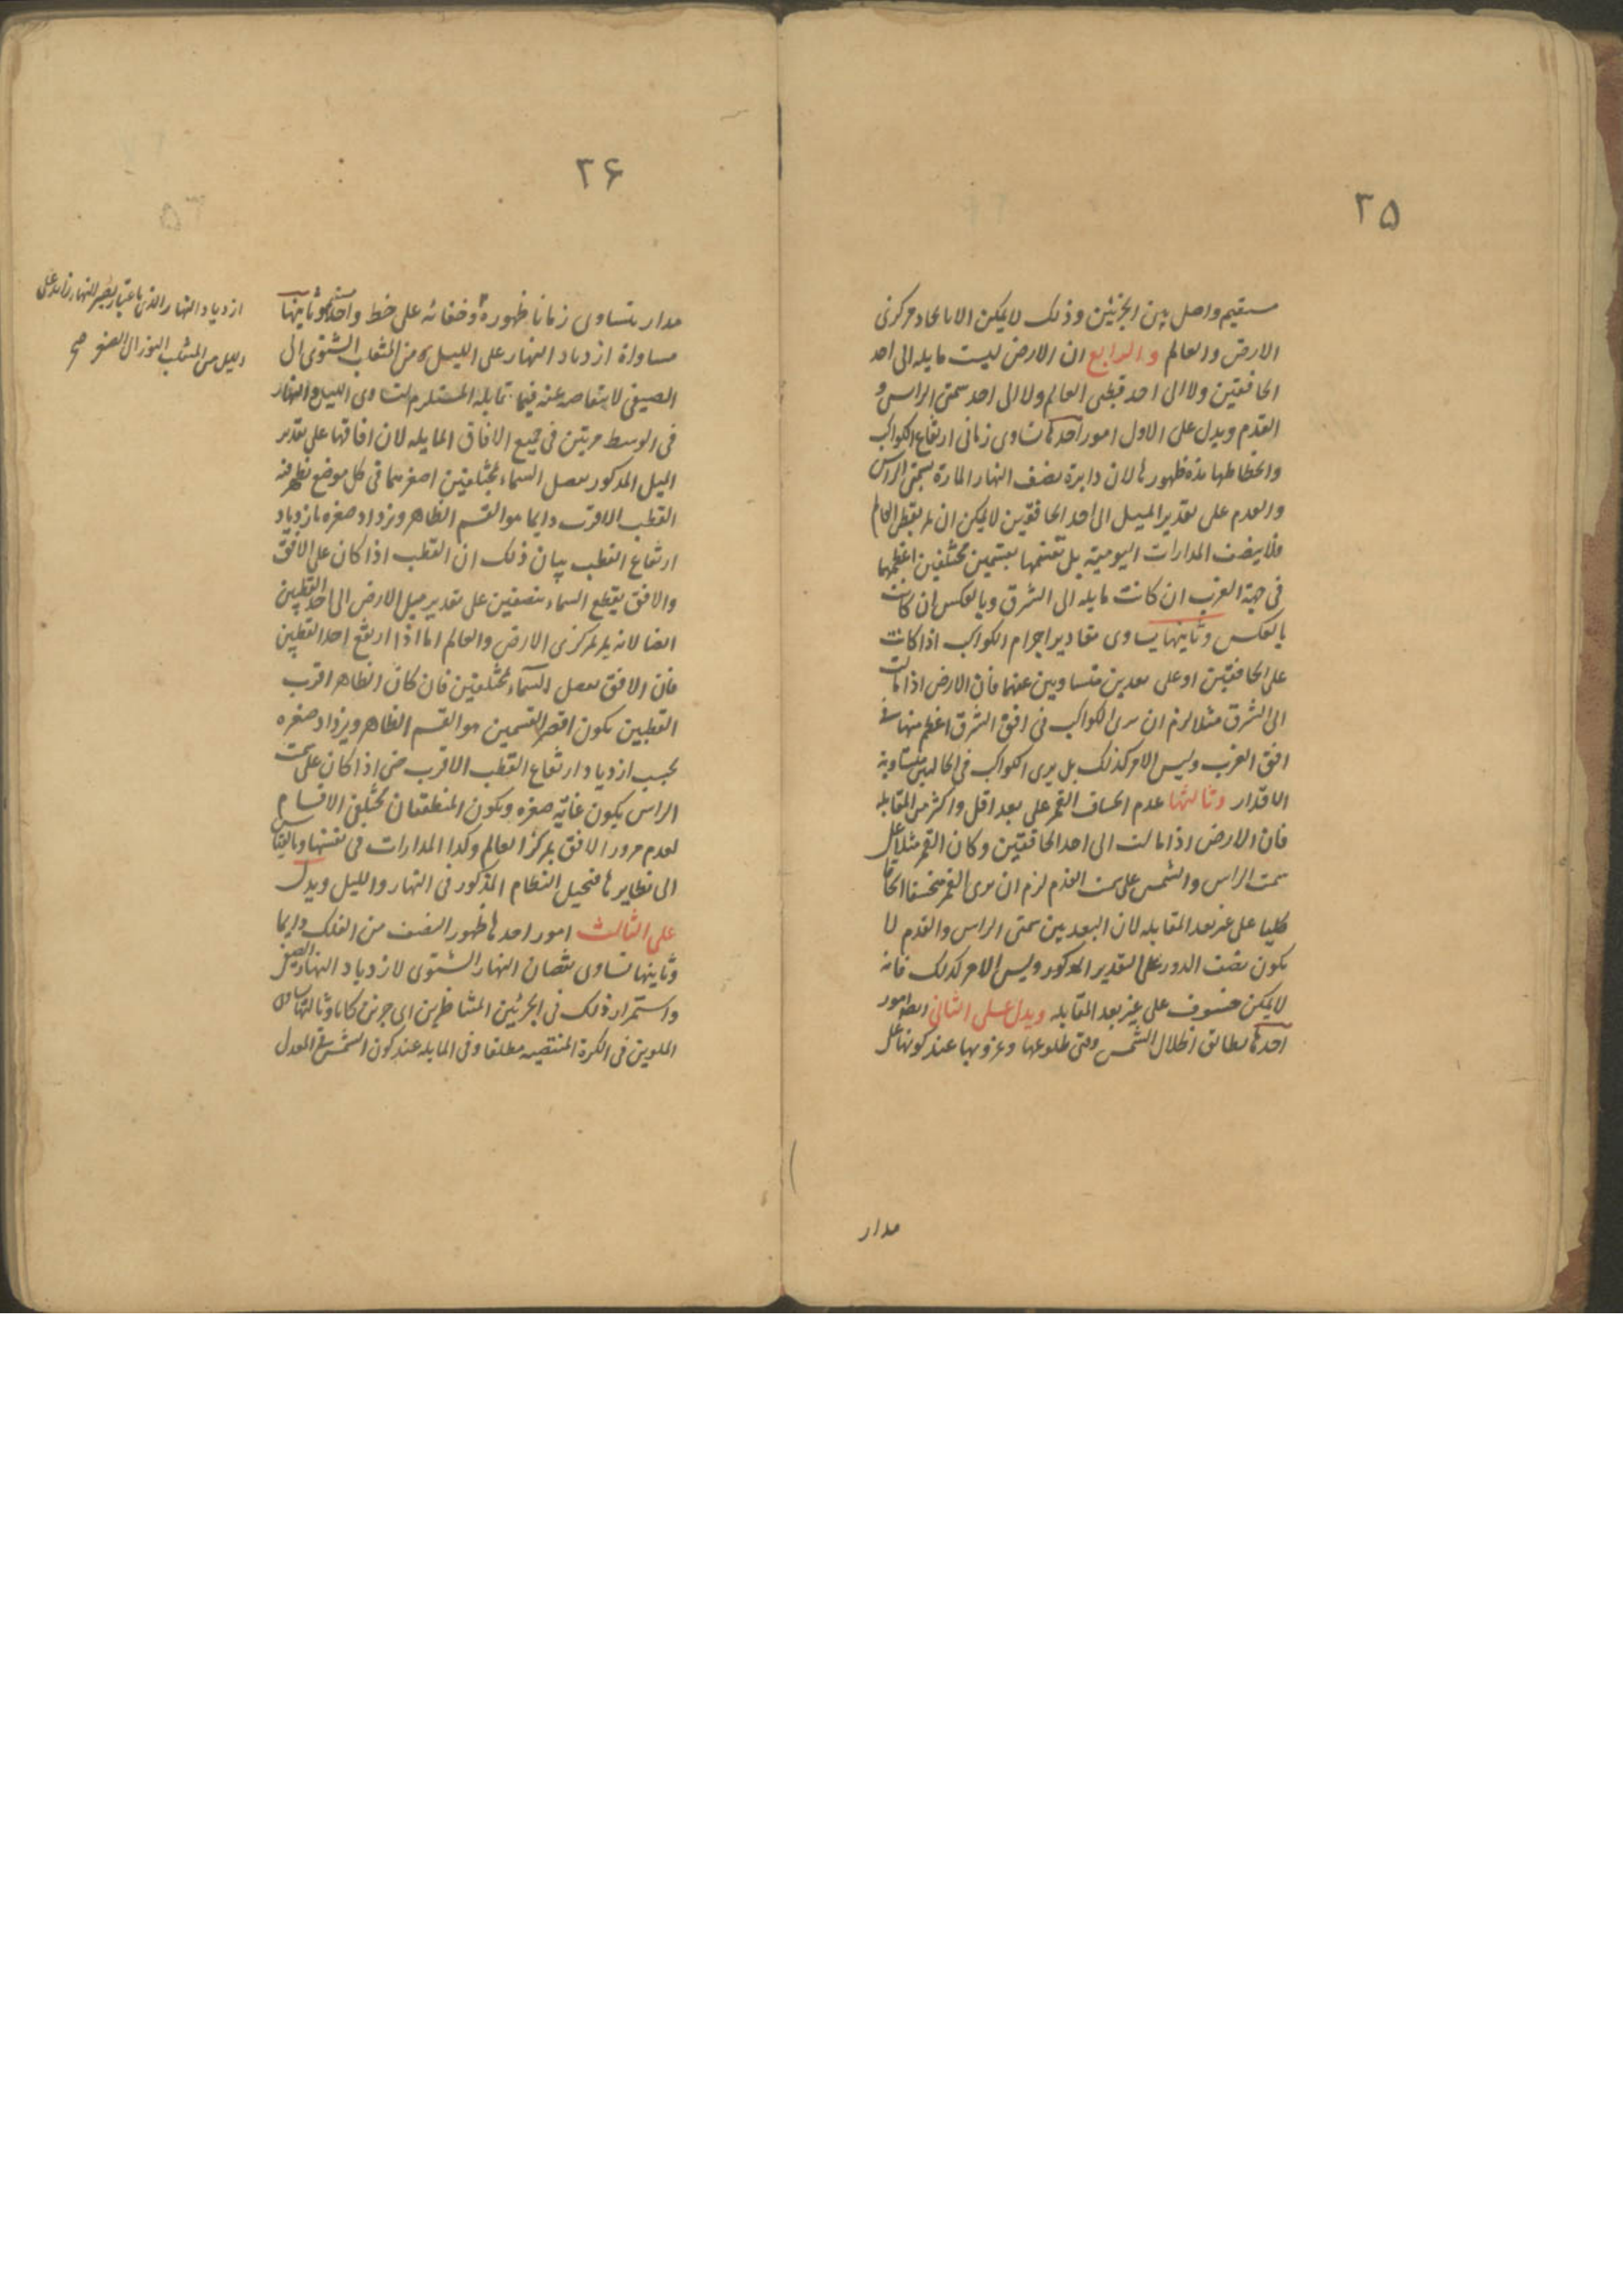 ٢۵
مستقيم واصل بين الجزئين وذلك لا يمكن الا باتحاد مركزى
الارض والعالم والرابع ان الارض ليست مايله الى احد
الخافقين ولا الى احد قطبى العالم ولا الى احد سمتى الراس و
القدم ويدل على الاول امور احدها تساوى زمانى ارتفاع الكواكب
وانحطاطها مدة ظهورها لان دايرة نصف النهار المارة بسمتى الراس
والقدم على تقدير الميل الى احد الخافقين لا يمكن ان تمر بقطبى العالم
فلا ينصف المدارات اليومية بل تقسمها بقسمين مختلفين اعظمهما
فى جهة الغرب ان كانت مايله الى الشرق وبالعكس ان كانت
بالعكس وثانيها تساوى مقادير اجرام الكواكب اذا كانت
على الخافقين او على بعدين متساويين عنهما فان الارض اذا مالت
الى الشرق مثلا لزم ان يرى الكواكب فى افق الشرق اعظم منها فى
افق الغرب وليس الامر كذلك بل يرى الكواكب فى الحالين متساوية
الاقدار وثالثها عدم انخساف القمر على بعد اقل واكثر من المقابله
فان الارض اذا مالت الى احد الخافقين وكان القمر مثلا على
سمت الراس والشمس على سمت القدم لزم ان يرى القمر منخسفا انخسافا
كليا على غير بعد المقابله لان البعد بين سمتى الراس والقدم لا
يكون نصف الدور على التقدير المذكور وليس الامر كذلك فانه
لا يمكن خسوف على غير بعد المقابله ويدل على الثانى ايضا امور
احدها تطابق اظلال الشمس وقتى طلوعها وغروبها عند كونها على
مدار
٢۶
مدار يتساوى زمانا ظهوره وخفائه على خط واحد وثانيها
مساواة ازدياد النهار على الليل من المنقلب الشتوى الى
الصيفى لانتقاصه عنه فيما يقابله المستلزم لتساوى الليل والنهار
فى الوسط مرتين فى جميع الافاق المايله لان افاقها على تقدير
الميل المذكور تفصل السماء بمختلفين اصغرهما فى كل موضع يظهر فيه
القطب الاقرب دايما هو القسم الظاهر ويزداد صغره بازدياد
ارتفاع القطب بيان ذلك ان القطب اذا كان على الافق
والافق يقطع السماء بنصفين على تقدير ميل الارض الى احد القطبين
ايضا لانه يمر بمركزى الارض والعالم اما اذا ارتفع احد القطبين
فان الافق يفصل السماء بمختلفين فان كان الظاهر اقرب
القطبين يكون اقصر القسمين هو القسم الظاهر ويزداد صغره
بحسب ازدياد ارتفاع القطب الاقرب حتى اذا كان على سمت
الراس يكون غاية صغره ويكون المنطقتان مختلفى الاقسام
لعدم مرور الافق بمركز العالم وكذا المدارات فى نفسها وبالقياس
الى نظايرها فيختل النظام المذكور فى النهار والليل ويدل
على الثالث امور احدها ظهور النصف من الفلك دايما
وثانيها تساوى نقصان النهار الشتوى لازدياد النهار الصيفى
واستمرار ذلك فى الجزئين المتناظرين اى جزئين كانا وثالثها تساوى
الملوين فى الكرة المنتصبه مطلقا وفى المايله عند كون الشمس فى المعدل
ازدياد النهار الذى باعتباره يصير النهار زايدا على
الليل من المنقلب الى الصيفى صح